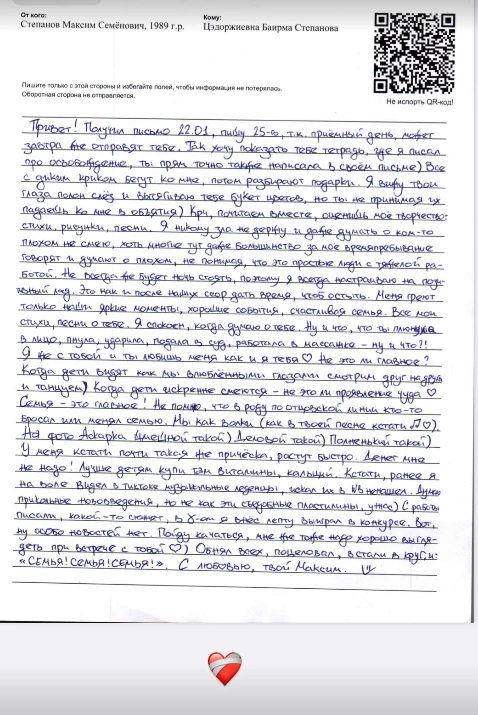 От кого:
Степанов Максим Семёнович, 1989 г.р.
Кому:
Цэдоржиевна Баирма Степанова
Пишите только с этой стороны и избегайте полей, чтобы информация не потерялась.
Оборотная сторона не отправляется.
Не испорть QR-код!
Привет! Получил письмо 22.01, пишу 25-го, т.к. приёмный день, может
завтра же отправят тебе. Так хочу показать тебе тетрадь, где я писал
про освобождение, ты прям точно также написала в своём письме) Все
с диким криком бегут ко мне, потом разбирают подарки. Я вижу твои
глаза полон слёз и вытягиваю тебе букет цветов, но ты не принимая их
падаешь ко мне в объятия) Крч, почитаем вместе, оценишь моё творчество:
стихи, рисунки, песни. Я никому зла не держу и даже думать о ком-то
плохом не смею, хоть многие тут даже большинство за моё времяпребывание
говорят и думают о плохом, не понимая, что это простые люди с тяжелой ра-
ботой. Не всегда же будет ночь стоять, поэтому я всегда настраиваю на
лад. Это как и после наших ссор дать время, чтоб остыть. Меня греют
только наши яркие моменты, хорошие события, счастливая семья. Все мои
стихи, песни о тебе. Я спокоен, когда думаю о тебе. Ну и что, что ты плюнула
в лицо, пнула, ударила, подала в суд, работала в массажке - ну и что?!
Я же с тобой и ты любишь меня как и я тебя ♡ Не это ли главное?
Когда дети видят как мы влюблёнными глазами смотрим друг на друга
и танцуем) Когда дети искренне смеются - не это ли проявление чуда ♡
Семья - это главное! Не помню, что в роду по отцовской линии кто-то
бросал или менял семью. Мы как волки (как в твоей песне кстати ♫♡)
На фото Аскарка смешной такой) Деловой такой) Полненький такой)
У меня кстати почти такая же причёска, растут быстро. Денег мне
не надо! Лучше детям купи там витамины, кальций. Кстати, ранее я
на воле видел в тиктоке музыкальные леденцы, искал их в WB не нашел.
прикольные нововведения, но не как эти съедобные пластилины, утнсе) С работы
писали, какой-то сюжет, в я внёс лепту выиграл в конкурсе. Вот,
ну особо новостей нет. Пойду качаться, мне же тоже надо хорошо выгля-
деть при встрече с тобой ♡) Обнял всех, поцеловал, встали в круг и:
«СЕМЬЯ! СЕМЬЯ! СЕМЬЯ!». С любовью, твой Максим.